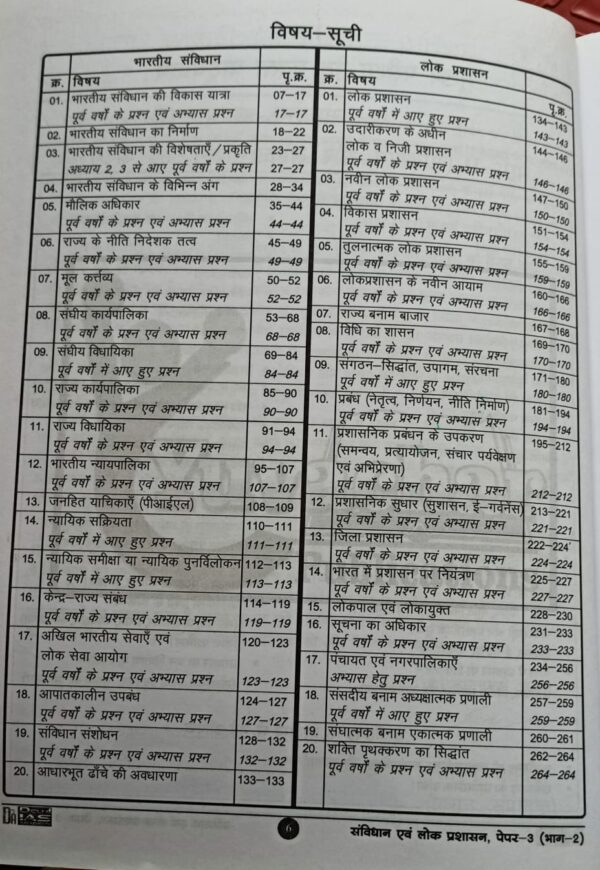 विषय–सूची
भारतीय संविधान
क्र. विषय पृ.क्र.
01. भारतीय संविधान की विकास यात्रा 07–17
पूर्व वर्षों के प्रश्न एवं अभ्यास प्रश्न 17–17
02. भारतीय संविधान का निर्माण 18–22
03. भारतीय संविधान की विशेषताएँ/प्रकृति 23–27
अध्याय 2, 3 से आए पूर्व वर्षों के प्रश्न 27–27
04. भारतीय संविधान के विभिन्न अंग 28–34
05. मौलिक अधिकार 35–44
पूर्व वर्षों के प्रश्न एवं अभ्यास प्रश्न 44–44
06. राज्य के नीति निदेशक तत्व 45–49
पूर्व वर्षों के प्रश्न एवं अभ्यास प्रश्न 49–49
07. मूल कर्त्तव्य 50–52
पूर्व वर्षों के प्रश्न एवं अभ्यास प्रश्न 52–52
08. संघीय कार्यपालिका 53–68
पूर्व वर्षों के प्रश्न एवं अभ्यास प्रश्न 68–68
09. संघीय विधायिका 69–84
पूर्व वर्षों में आए हुए प्रश्न 84–84
10. राज्य कार्यपालिका 85–90
पूर्व वर्षों के प्रश्न एवं अभ्यास प्रश्न 90–90
11. राज्य विधायिका 91–94
पूर्व वर्षों के प्रश्न एवं अभ्यास प्रश्न 94–94
12. भारतीय न्यायपालिका 95–107
पूर्व वर्षों के प्रश्न एवं अभ्यास प्रश्न 107–107
13. जनहित याचिकाएँ (पीआईएल) 108–109
14. न्यायिक सक्रियता 110–111
पूर्व वर्षों में आए हुए प्रश्न 111–111
15. न्यायिक समीक्षा या न्यायिक पुनर्विलोकन 112–113
पूर्व वर्षों में आए हुए प्रश्न 113–113
16. केन्द्र–राज्य संबंध 114–119
पूर्व वर्षों के प्रश्न एवं अभ्यास प्रश्न 119–119
17. अखिल भारतीय सेवाएँ एवं 120–123
लोक सेवा आयोग
पूर्व वर्षों के प्रश्न एवं अभ्यास प्रश्न 123–123
18. आपातकालीन उपबंध 124–127
पूर्व वर्षों के प्रश्न एवं अभ्यास प्रश्न 127–127
19. संविधान संशोधन 128–132
पूर्व वर्षों के प्रश्न एवं अभ्यास प्रश्न 132–132
20. आधारभूत ढाँचे की अवधारणा 133–133
लोक प्रशासन
क्र. विषय पृ.क्र.
01. लोक प्रशासन 134–143
पूर्व वर्षों में आए हुए प्रश्न 143–143
02. उदारीकरण के अधीन 144–146
लोक व निजी प्रशासन
पूर्व वर्षों के प्रश्न एवं अभ्यास प्रश्न 146–146
03. नवीन लोक प्रशासन 147–150
पूर्व वर्षों के प्रश्न एवं अभ्यास प्रश्न 150–150
04. विकास प्रशासन 151–154
पूर्व वर्षों के प्रश्न एवं अभ्यास प्रश्न 154–154
05. तुलनात्मक लोक प्रशासन 155–159
पूर्व वर्षों के प्रश्न एवं अभ्यास प्रश्न 159–159
06. लोकप्रशासन के नवीन आयाम 160–166
पूर्व वर्षों के प्रश्न एवं अभ्यास प्रश्न 166–166
07. राज्य बनाम बाजार 167–168
08. विधि का शासन 169–170
पूर्व वर्षों के प्रश्न एवं अभ्यास प्रश्न 170–170
09. संगठन–सिद्धांत, उपागम, संरचना 171–180
पूर्व वर्षों में आए हुए प्रश्न 180–180
10. प्रबंध (नेतृत्व, निर्णयन, नीति निर्माण) 181–194
पूर्व वर्षों के प्रश्न एवं अभ्यास प्रश्न 194–194
11. प्रशासनिक प्रबंधन के उपकरण 195–212
(समन्वय, प्रत्यायोजन, संचार पर्यवेक्षण
एवं अभिप्रेरणा)
पूर्व वर्षों के प्रश्न एवं अभ्यास प्रश्न 212–212
12. प्रशासनिक सुधार (सुशासन, ई–गर्वनेस) 213–221
पूर्व वर्षों के प्रश्न एवं अभ्यास प्रश्न 221–221
13. जिला प्रशासन 222–224
पूर्व वर्षों के प्रश्न एवं अभ्यास प्रश्न 224–224
14. भारत में प्रशासन पर नियंत्रण 225–227
पूर्व वर्षों के प्रश्न एवं अभ्यास प्रश्न 227–227
15. लोकपाल एवं लोकायुक्त 228–230
16. सूचना का अधिकार 231–233
पूर्व वर्षों के प्रश्न एवं अभ्यास प्रश्न 233–233
17. पंचायत एवं नगरपालिकाएँ 234–256
अभ्यास हेतु प्रश्न 256–256
18. संसदीय बनाम अध्यक्षात्मक प्रणाली 257–259
पूर्व वर्षों में आए हुए प्रश्न 259–259
19. संघात्मक बनाम एकात्मक प्रणाली 260–261
20. शक्ति पृथक्करण का सिद्धांत 262–264
पूर्व वर्षों के प्रश्न एवं अभ्यास प्रश्न 264–264
6
संविधान एवं लोक प्रशासन, पेपर–3 (भाग–2)